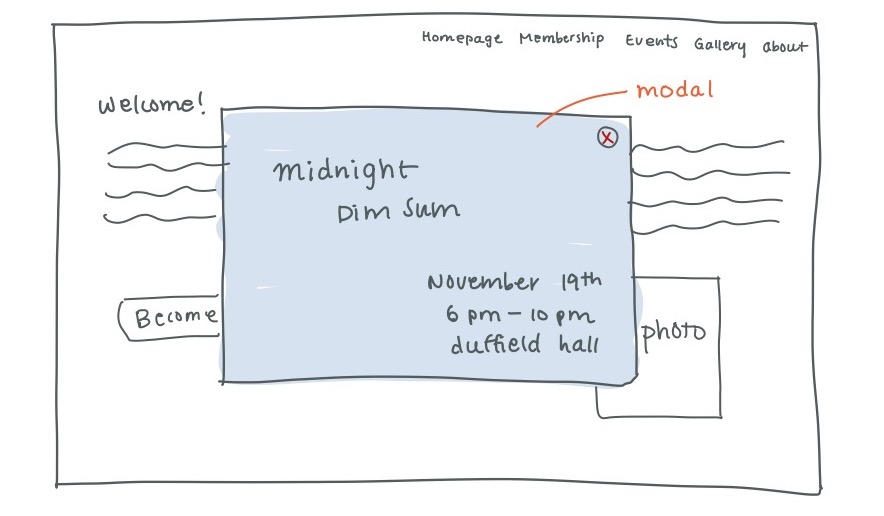 Homepage Membership Events Gallery about
modal
Welcome!
X
midnight
Dim Sum
November 19th
6 pm - 10 pm
duffield hall
Become
photo